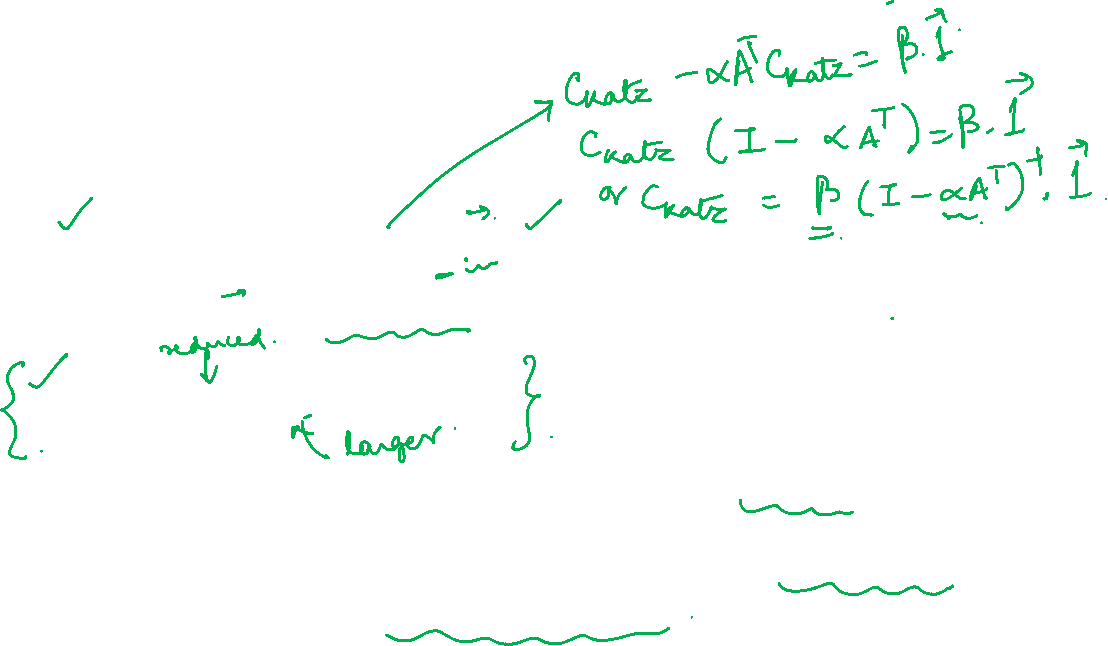 C_Katz - αA^T C_Katz = β.1⃗
C_Katz (I - αA^T) = β.1⃗
or C_Katz = β (I - αA^T)^-1 . 1⃗
- in
reduced.
larger.